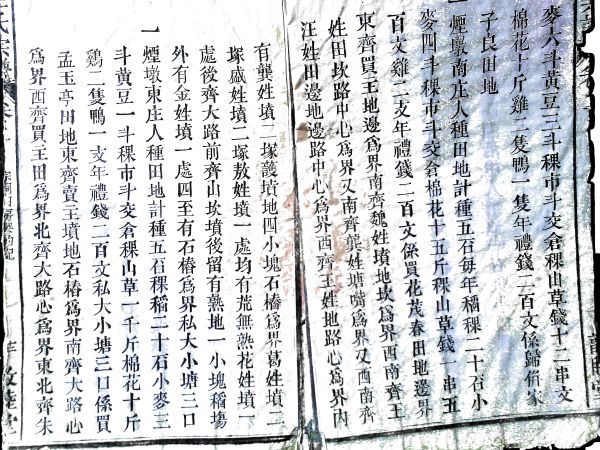 麥六斗黃豆三斗稞市斗交倉稞山草錢十二串文
棉花十斤雞二隻鴨一隻年禮錢二百文係歸伯家
子良田地
一煙墩南庄人種田地計種五石每年稻稞二十石小
麥四斗稞市斗交倉棉花十五斤稞山草錢一串五
百文雞二支年禮錢二百文係買花茂春田地邊界
東齊買王地邊為界南齊魏姓墳地坎為界西南齊王
姓田坎路中心為界又南齊龔姓塘嘴為界又西南齊
汪姓田邊地邊路中心為界西齊王姓地路心為界內
有龔姓墳二塚護墳地四小塊石樁為界葛姓墳二
塚戚姓墳二塚敖姓墳一處均有荒無熟花姓墳一
處後齊大路前齊山坎墳後留有熟地一小塊稻場
外有金姓墳一處四至有石樁為界私大小塘三口
一煙墩東庄人種田地計種五石稞稻二十石小麥三
斗黃豆一斗稞市斗交倉稞山草一千斤棉花十斤
雞二隻鴨一支年禮錢二百文私大小塘三口係買
孟玉亭田地東齊賣主墳地石樁為界南齊大路心
為界西齊買王田為界北齊大路心為界東北齊朱
敦睦堂